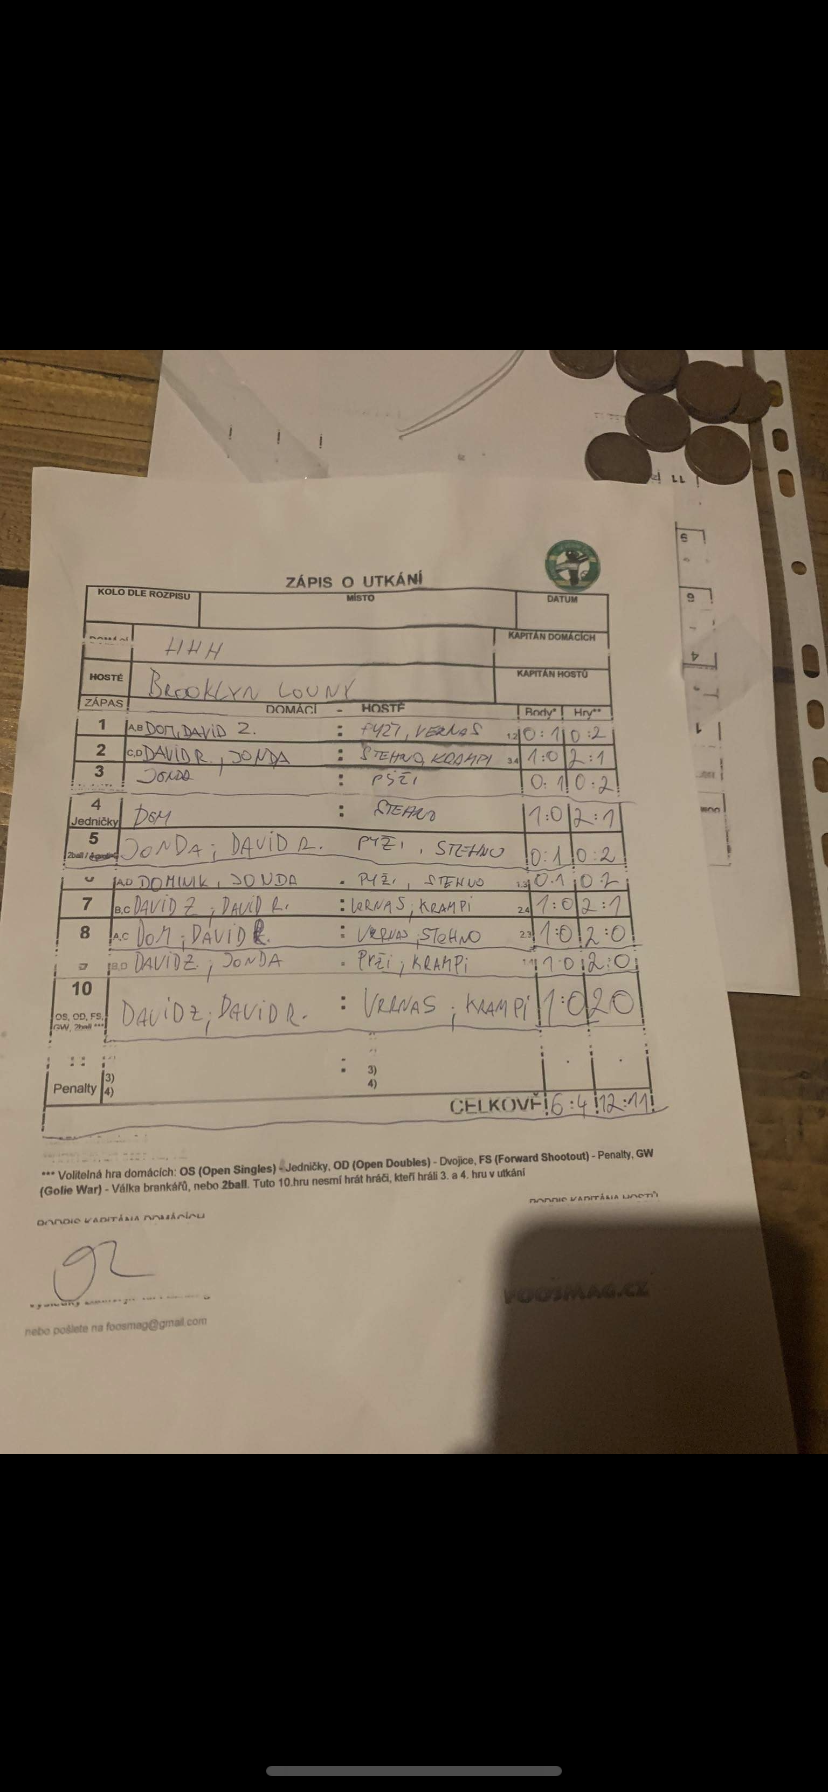 ZÁPIS O UTKÁNÍ
KOLO DLE ROZPISU MÍSTO DATUM
HHH KAPITÁN DOMÁCÍCH
HOSTÉ BROOKLYN LOUNY KAPITÁN HOSTŮ
ZÁPAS DOMÁCÍ - HOSTÉ Body* Hry**
1 A,B DOM, DAVID Z. : PYŽI, VERNAS 1,2 0:1 0:2
2 C,D DAVID R., JONDA : STEHNO, KRAMPI 3,4 1:0 2:1
3 JONDA : PYŽI 0:1 0:2
4 Jedničky DOM : STEHNO 1:0 2:1
5 2ball / JONDA; DAVID R. PYŽI, STEHNO 0:1 0:2
A,D DOMINIK, JONDA PYŽI, STEHNO 1,3 0:1 0:2
7 B,C DAVID Z, DAVID R. : VERNAS; KRAMPI 2,4 1:0 2:1
8 A,C DOM; DAVID R. : VERNAS, STEHNO 2,3 1:0 2:0
B,D DAVID Z; JONDA PYŽI; KRAMPI 1:0 2:0
10 OS, OD, FS, GW, 2ball *** DAVID Z; DAVID R. : VERNAS; KRAMPI 1:0 20
:
Penalty 3) 4) 3) 4)
CELKOVĚ 6:4 12:11
*** Volitelná hra domácích: OS (Open Singles) - Jedničky, OD (Open Doubles) - Dvojice, FS (Forward Shootout) - Penalty, GW
(Golie War) - Válka brankářů, nebo 2ball. Tuto 10.hru nesmí hrát hráči, kteří hráli 3. a 4. hru v utkání
PODPIS KAPITÁNA DOMÁCÍCH PODPIS KAPITÁNA HOSTŮ
FOOSMAG.CZ
nebo pošlete na foosmag@gmail.com